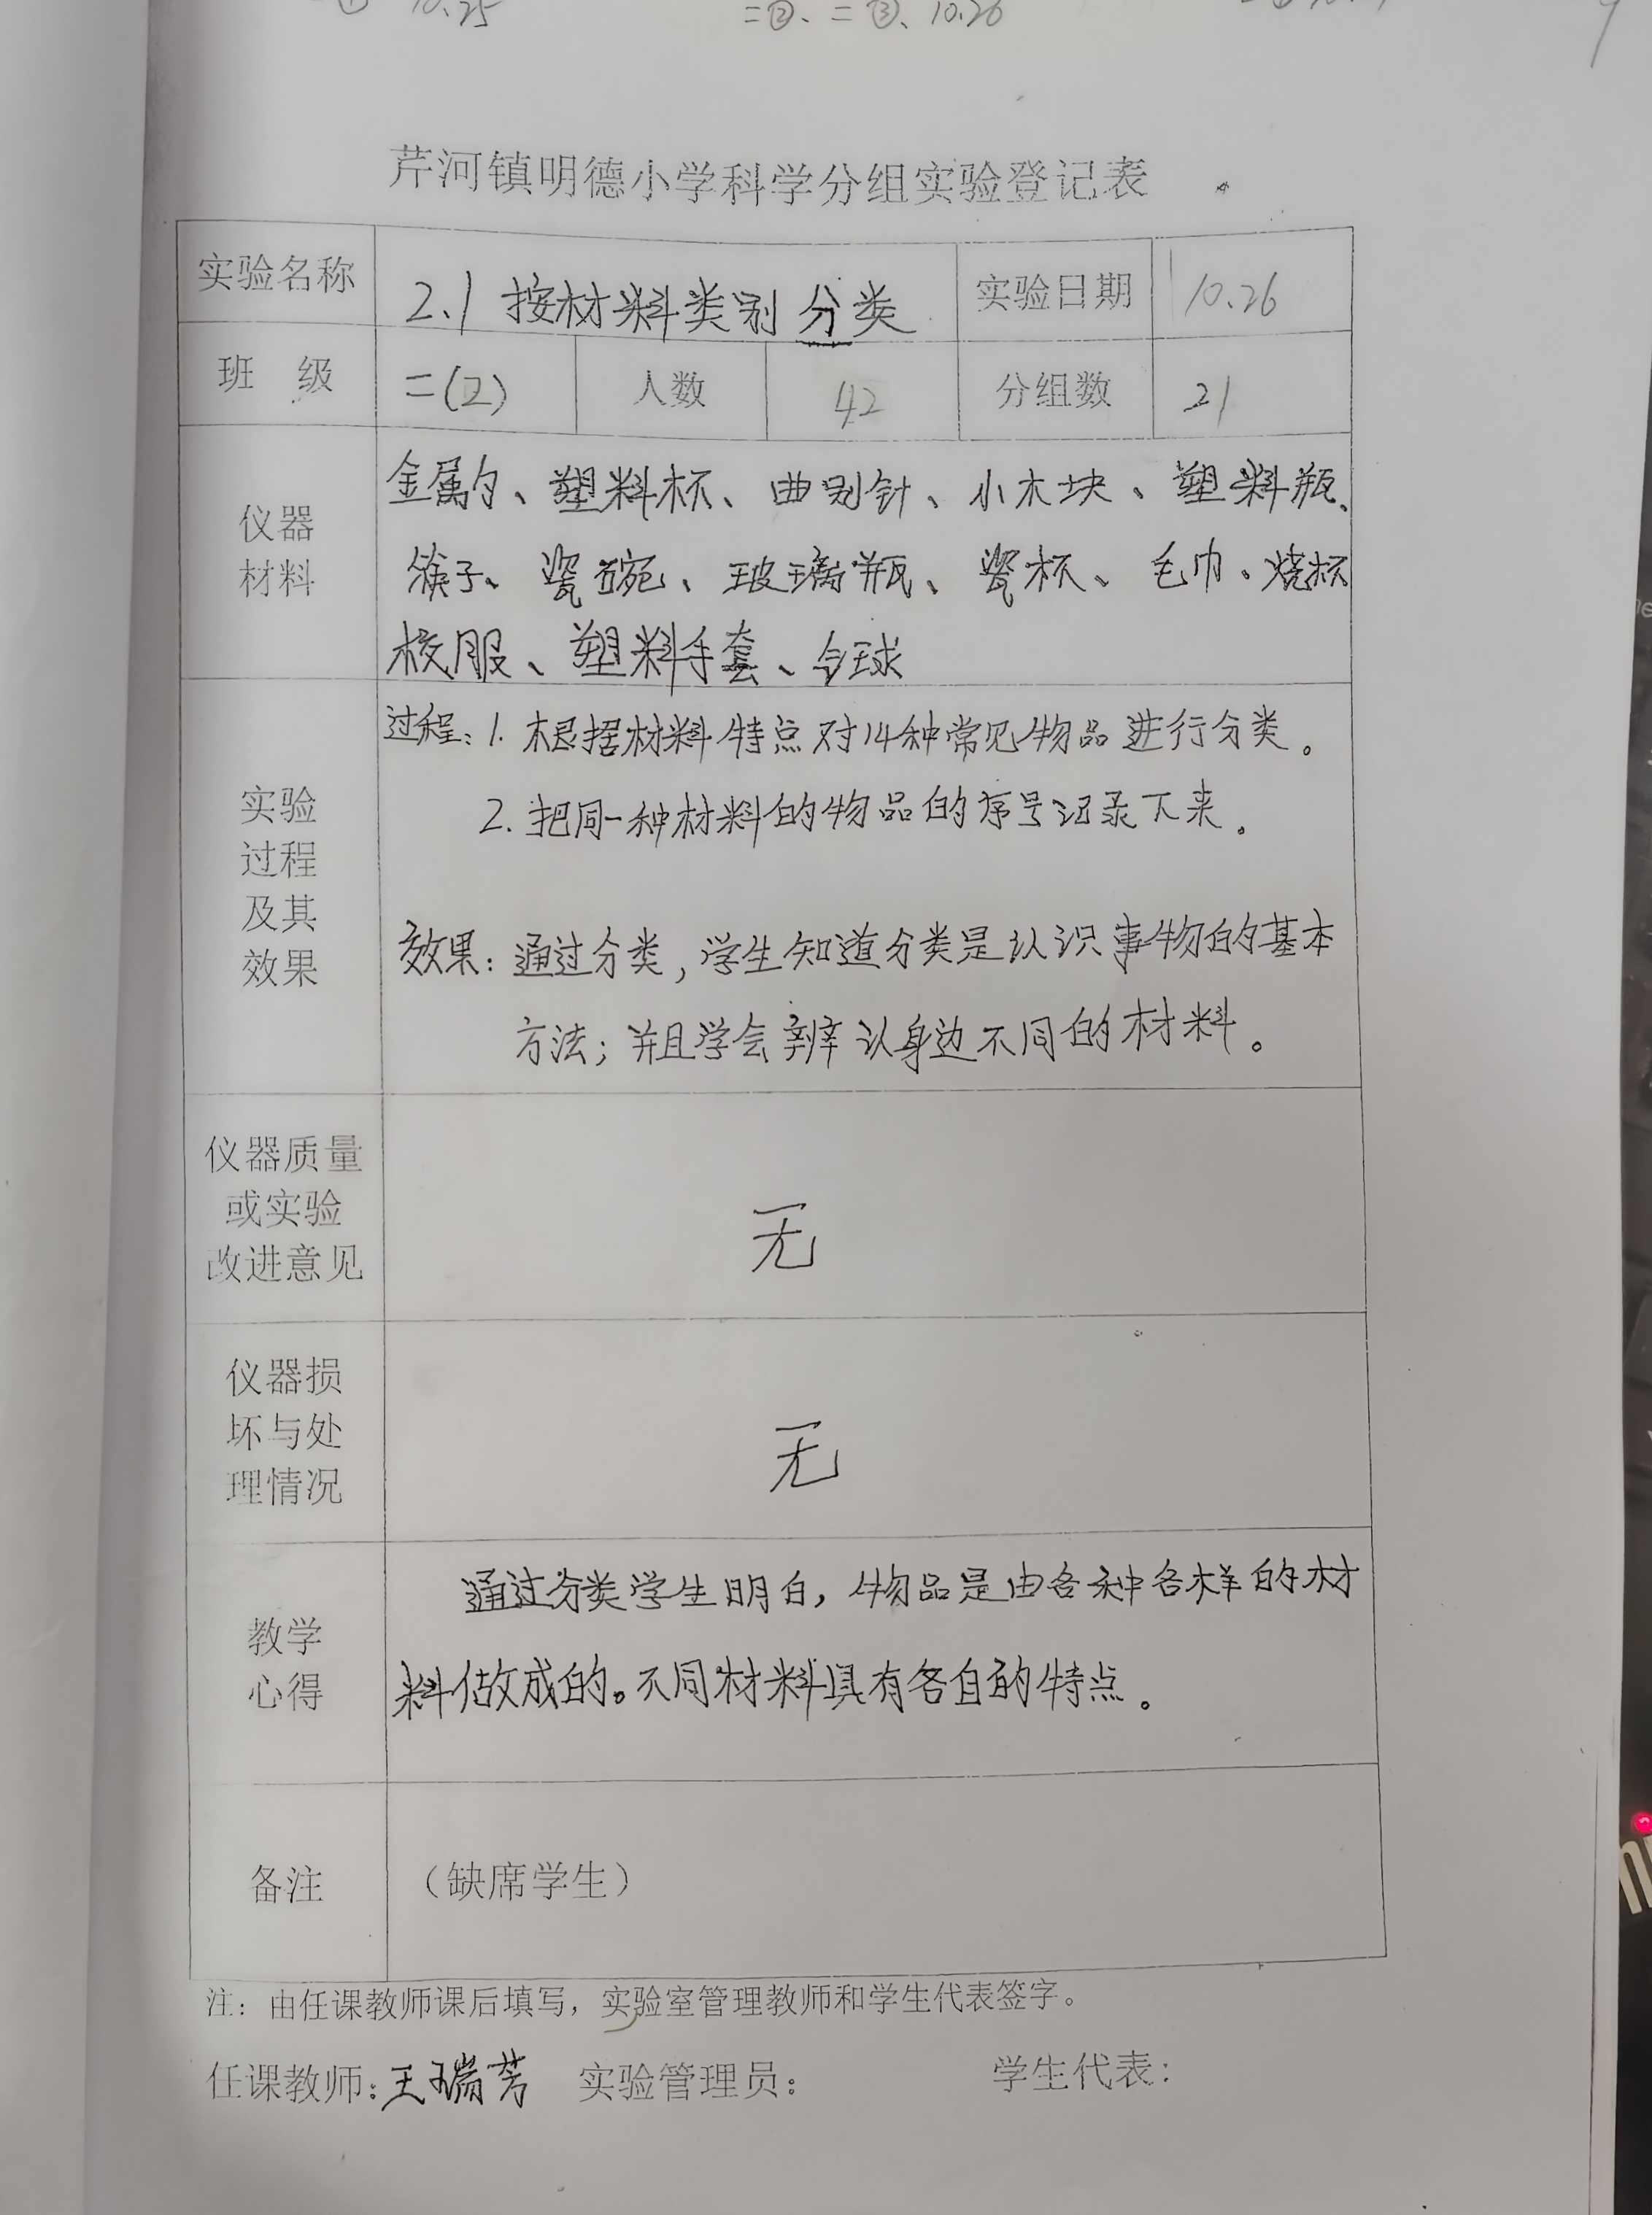 10.25
二②、二③、10.26
芹河镇明德小学科学分组实验登记表
实验名称 2.1 按材料类别分类 实验日期 10.26
班 级 二(2) 人数 42 分组数 21
仪器
材料
金属勺、塑料杯、曲别针、小木块、塑料瓶、
筷子、瓷碗、玻璃瓶、瓷杯、毛巾、烧杯
校服、塑料手套、球
实验
过程
及其
效果
过程：1. 根据材料特点对14种常见物品进行分类。
2. 把同一种材料的物品的序号记录下来。
效果：通过分类，学生知道分类是认识事物的基本
方法；并且学会辨认身边不同的材料。
仪器质量
或实验
改进意见
无
仪器损
坏与处
理情况
无
教学
心得
通过分类学生明白，物品是由各种各样的材
料做成的。不同材料具有各自的特点。
备注 （缺席学生）
注：由任课教师课后填写，实验室管理教师和学生代表签字。
任课教师：王瑞芳 实验管理员： 学生代表：